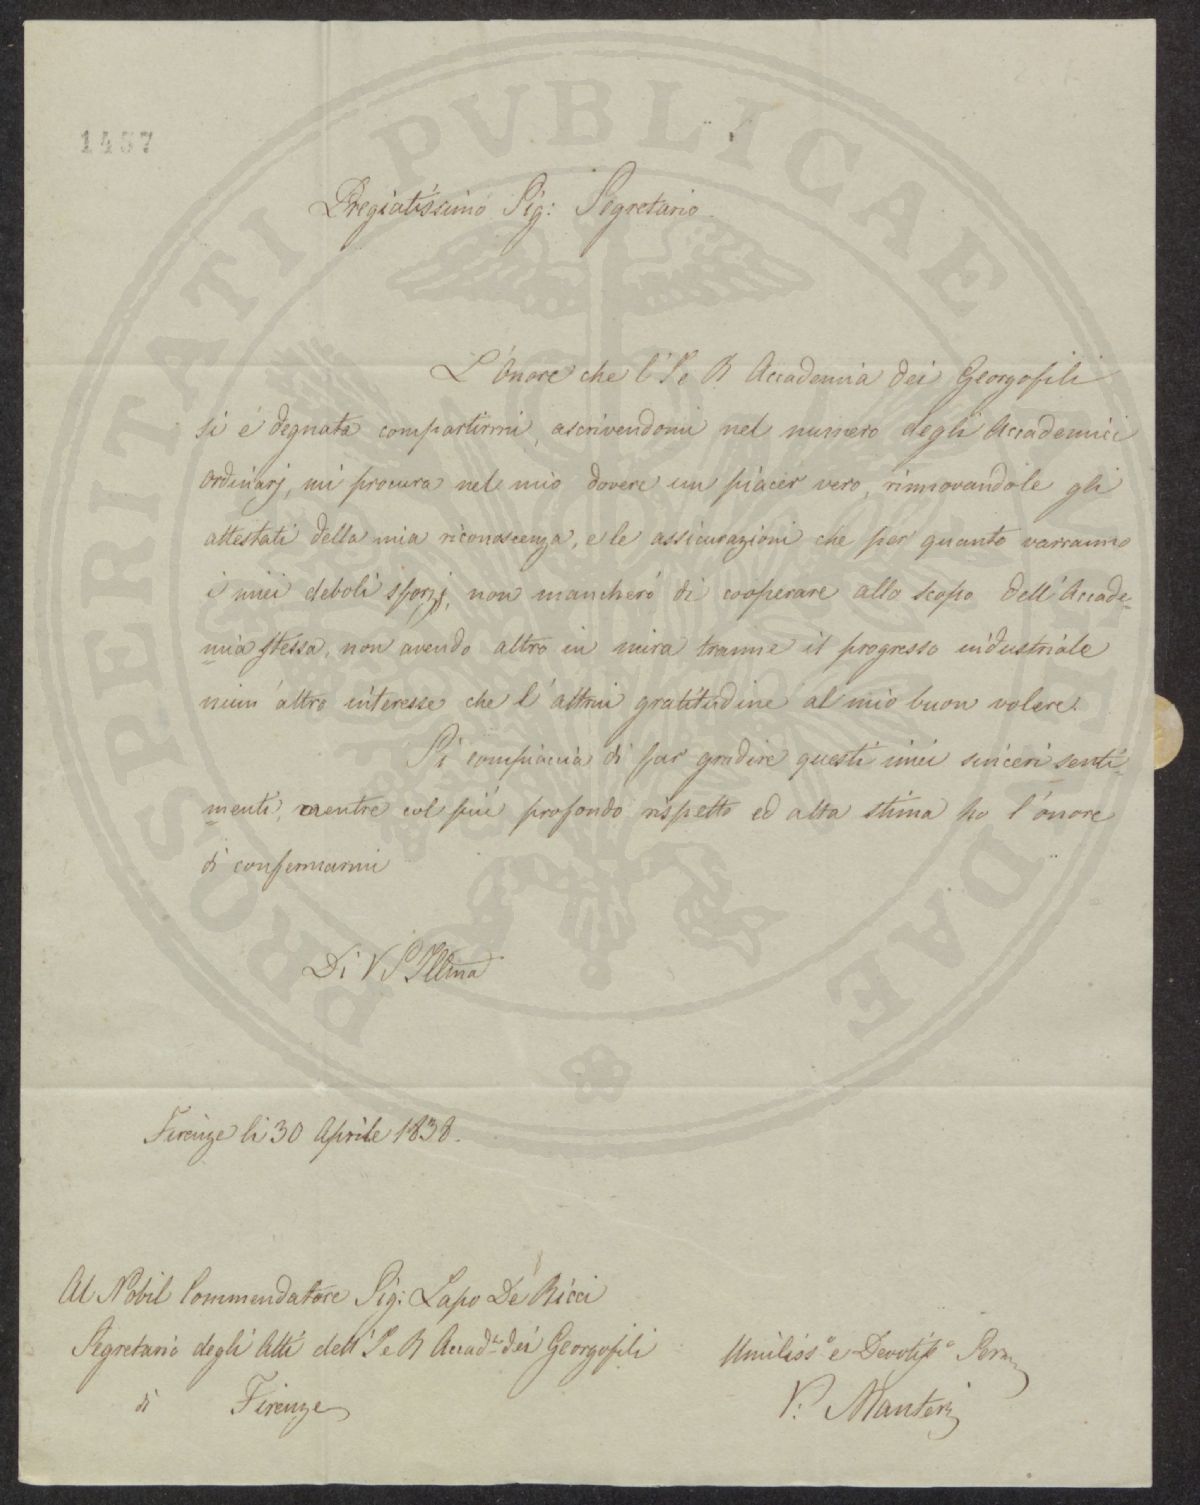 1457
PROSPERITATI PVBLICAE AVGENDAE
Pregiatissimo Sig: Segretario.
L'Onore che l'I e R Accademia dei Georgofili
si è degnata compartirmi, ascrivendomi nel numero degli Accademici
Ordinarj, mi procura nel mio dovere un piacer vero, rinnovandole gli
attestati della mia riconoscenza, e le assicurazioni che per quanto varranno
i miei deboli sforzj, non mancheró di cooperare allo scopo dell'Accade-
mia stessa, non avendo altro in mira tranne il progresso industriale
niun'altro interesse che l'altrui gratitudine al mio buon volere.
Si compiaccia di far gradire questi miei sinceri senti-
menti, mentre col piú profondo rispetto ed alta stima ho l'onore
di confermarmi
Di V S Illma
Firenze li 30 Aprile 1838.
Al Nobil Commendatore Sig: Lapo De Ricci
Segretario degli Atti dell'I e R Accad. dei Georgofili
di Firenze
Umiliss.o e Devotiss.o Serv
V: Manteri